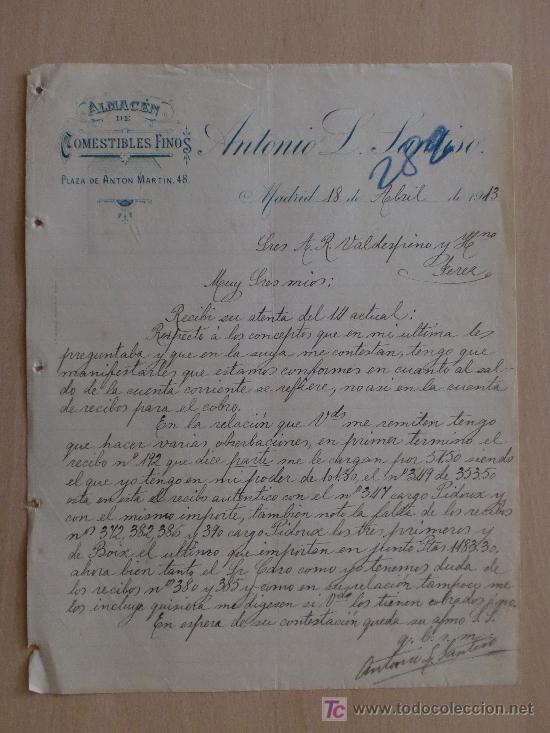 ALMACÉN
DE
COMESTIBLES FINOS
PLAZA DE ANTON MARTIN, 48
Antonio L. Santiso.
Madrid 18 de Abril de 1913
Sres A. R. Valdespino y Hno
Jerez
Muy Sres mios:
Recibi su atenta del 14 actual:
Respecto á los conceptos que en mi ultima les
preguntaba y que en la suya me contestan, tengo que
manifestarles que estamos conformes en cuanto al sal-
do de la cuenta corriente se refiere, no asi en la cuenta
de recibos para el cobro.
En la relación que Vds me remiten tengo
que hacer varias oberbaciones, en primer termino el
recibo nº 192 que dice parte me le cargan por 51.50 siendo
el que yo tengo en mi poder de 101.30, el nº 349 de 353.50
esta en este el recibo autentico con el nº 347 cargo Pidoux y
con el mismo importe, tambien noto la falta de los recibos
nos 372, 382, 386 y 390 cargo Pidoux los tres primeros y
de Boix el ultimo que importan en junto Ptas 1183.30,
ahora bien tanto el Sr Caro como yo tenemos duda de
los recibos nº 380 y 385 y como en su relación tampoco me
los incluye quisiera me digesen si Vds los tienen cobrados ó no.
En espera de su contestación queda su afmo S. S.
q. b. s. m.
Antonio L. Santiso
TC todocoleccion
www.todocoleccion.net